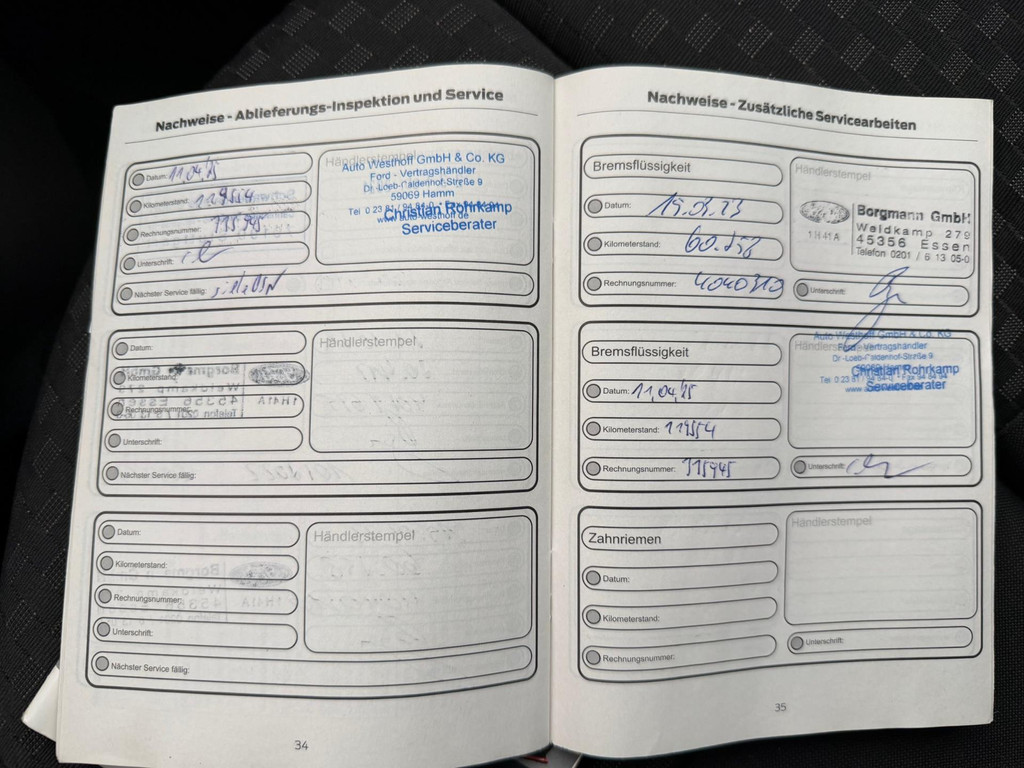 Nachweise - Ablieferungs-Inspektion und Service
Datum: 11.04.25
Kilometerstand: 119554
Rechnungsnummer: 315945
Unterschrift:
Nächster Service fällig:
Händlerstempel
Auto Westhoff GmbH & Co. KG
Ford - Vertragshändler
Dr.-Loeb-Caldenhof-Straße 9
59069 Hamm
Christian Rohrkamp
Serviceberater
Datum:
Kilometerstand:
Rechnungsnummer:
Unterschrift:
Nächster Service fällig:
Händlerstempel
Datum:
Kilometerstand:
Rechnungsnummer:
Unterschrift:
Nächster Service fällig:
Händlerstempel
34
Nachweise - Zusätzliche Servicearbeiten
Bremsflüssigkeit
Datum: 15.03.23
Kilometerstand: 60.758
Rechnungsnummer: 4040319
Händlerstempel
1H41A
Borgmann GmbH
Weidkamp 279
45356 Essen
Telefon 0201 / 6 13 05-0
Unterschrift:
Bremsflüssigkeit
Datum: 11.04.25
Kilometerstand: 119554
Rechnungsnummer: 315945
Händlerstempel
Auto Westhoff GmbH & Co. KG
Ford - Vertragshändler
Dr.-Loeb-Caldenhof-Straße 9
Christian Rohrkamp
Serviceberater
Unterschrift:
Zahnriemen
Datum:
Kilometerstand:
Rechnungsnummer:
Händlerstempel
Unterschrift:
35